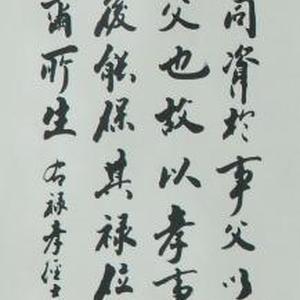 同資於事父以
父也故以孝事
後能保其祿位
爾所生 右祿孝經士